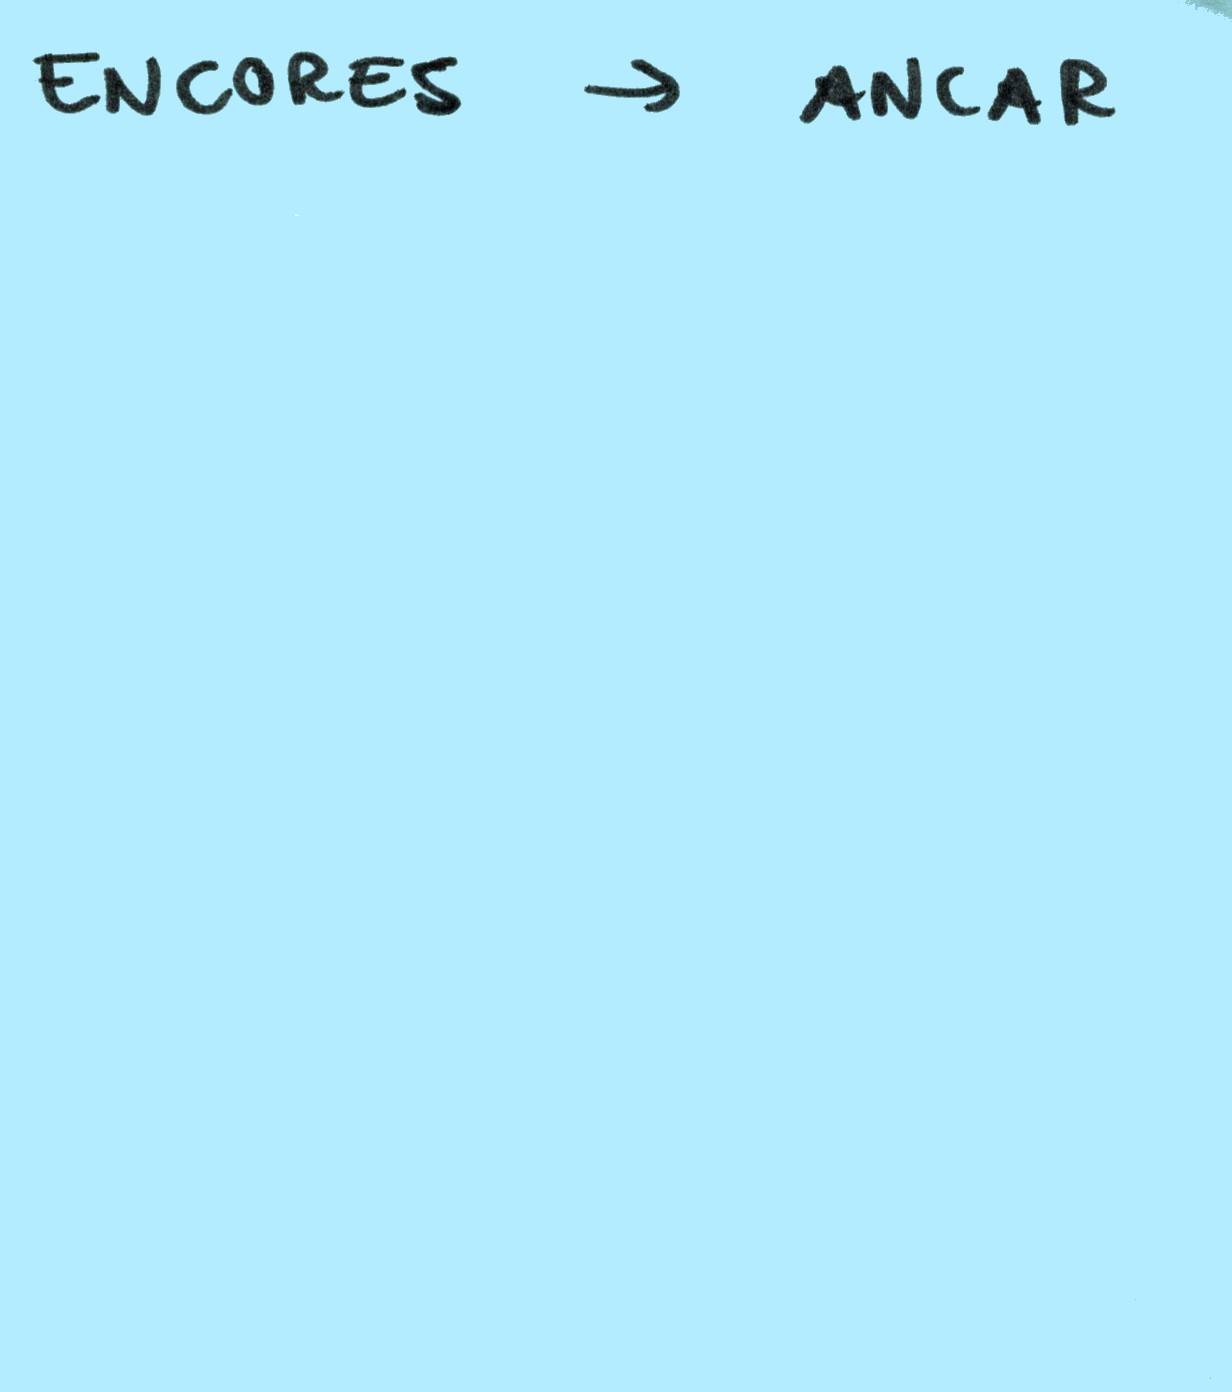 ENCORES → ANCAR